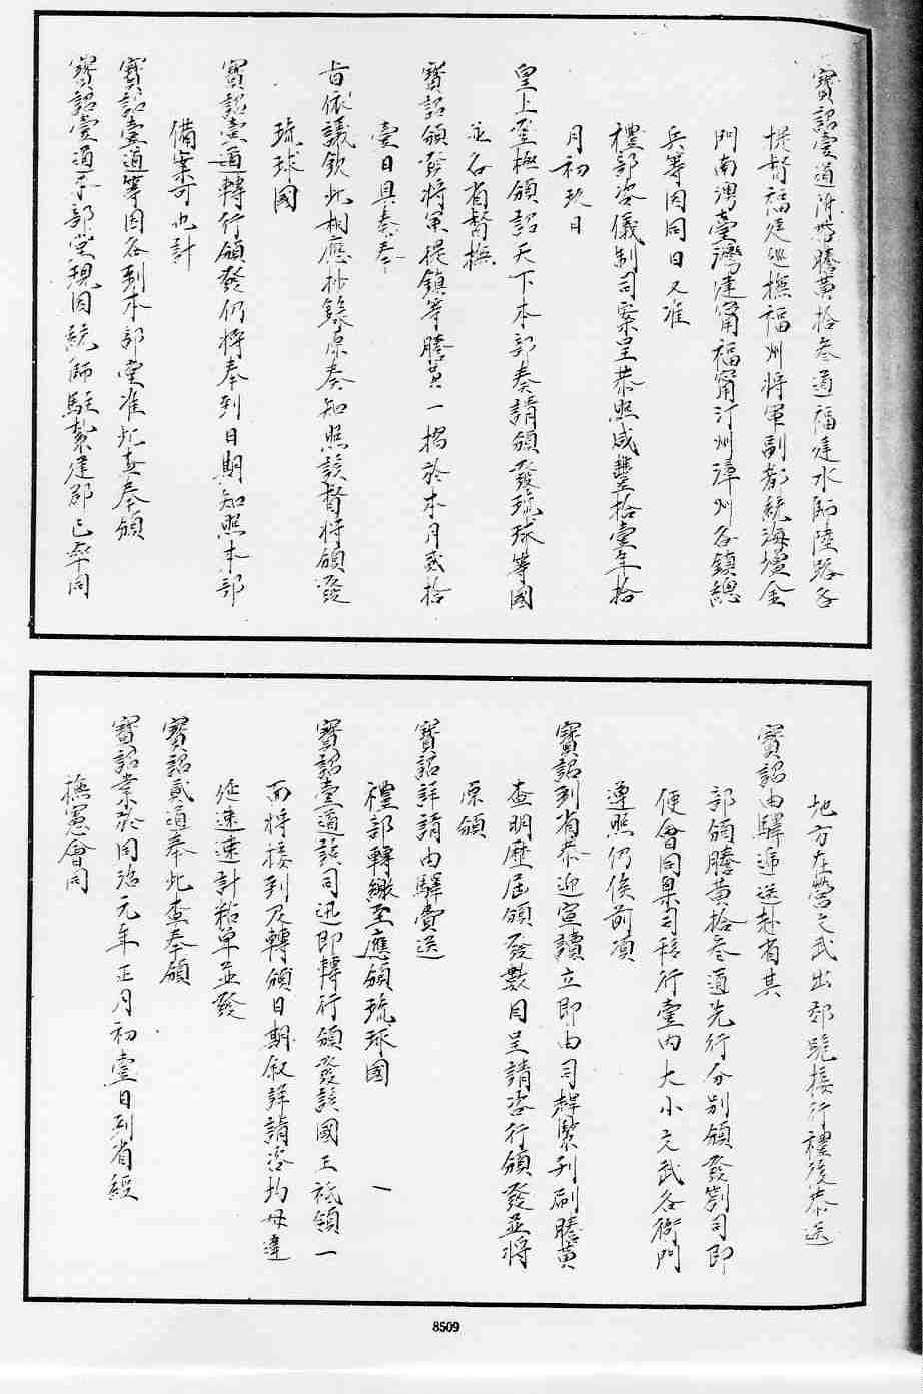 寶詔壹道消息謄黃拾叁道福建水師陸路各
提督福建巡撫福州將軍副都統海壇金
門南澳臺灣建甯福甯汀州漳州各鎮總
兵等因同日又准
禮部咨儀制司案呈恭照咸豐拾壹年拾
月初玖日
皇上登極頒詔天下本部奏請頒發琉球等國
並各省督撫
寶詔頒發將軍提鎮等謄黃一摺於本月貳拾
壹日具奏奉
旨依議欽此相應抄錄原奏知照該督將頒發
琉球國
寶詔壹道轉行頒發仍將奉到日期知照本部
備案可也計
寶詔壹道等因各到本部堂准此查奉頒
寶詔壹道本部堂現因統師駐紮建郡已率同
地方在營文武出郊跪接行禮後恭送
寶詔由驛遞送赴省其
部頒謄黃拾叁道先行分別頒發劄司即
便會同臬司移行臺內大小文武各衙門
遵照仍俟前項
寶詔到省恭迎宣讀立即由司趕緊刊刷謄黃
查明歷屆頒發數目呈請咨行頒發並將
原頒
寶詔詳請由驛賫送
禮部轉繳至應頒琉球國一
寶詔壹道該司迅即轉行頒發該國王祗領一
面將接到及轉頒日期叙詳請咨均毋違
延速速計粘單並發
寶詔貳道奉此查奉頒
寶詔業於同治元年正月初壹日到省經
撫憲會同
8509